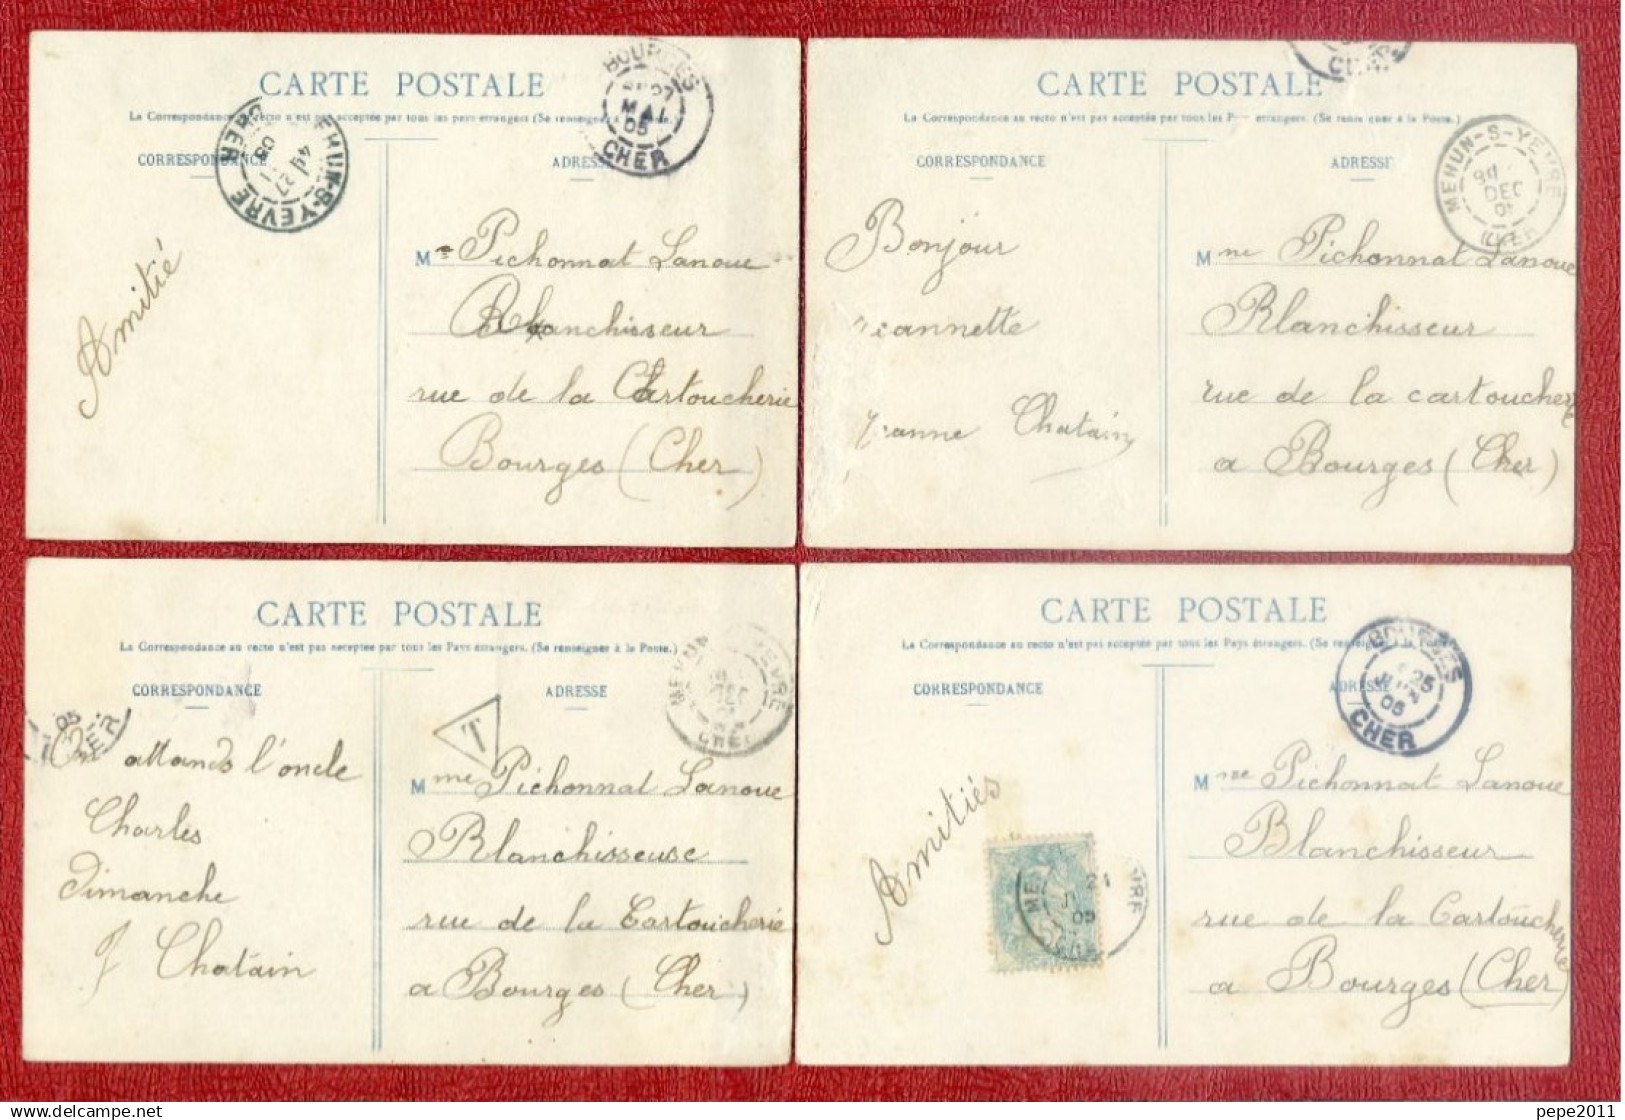 CARTE POSTALE
La Correspondance au recto n'est pas acceptée par tous les pays étrangers (Se renseigner à la Poste.)
CORRESPONDANCE
ADRESSE
BOURGES
MAI
05
CHER
EHUN-S-YEVRE
CHER
27
05
Amitié
Mme Pichonnat Lanoue
Blanchisseur
rue de la Cartoucherie
Bourges (Cher)
CARTE POSTALE
La Correspondance au recto n'est pas acceptée par tous les P étrangers. (Se renseigner à la Poste.)
CORRESPONDANCE
ADRESSE
MEHUN-S-YEVRE
DEC
CHER
Bonjour
Jeannette
Jeanne Chatain
Mme Pichonnat Lanoue
Blanchisseur
rue de la cartoucherie
a Bourges (Cher)
CARTE POSTALE
La Correspondance au recto n'est pas acceptée par tous les Pays étrangers. (Se renseigner à la Poste.)
CORRESPONDANCE
ADRESSE
T
05
On attands l'oncle
Charles
Dimanche
J Chatain
Mme Pichonnat Lanoue
Blanchisseuse
rue de la Cartoucherie
a Bourges (Cher)
CARTE POSTALE
La Correspondance au recto n'est pas acceptée par tous les Pays étrangers. (Se renseigner à la Poste.)
CORRESPONDANCE
ADRESSE
BOURGES
25
JUIN
05
CHER
Amitiés
21
05
Mme Pichonnat Lanoue
Blanchisseur
rue de la Cartoucherie
a Bourges (Cher)
pepe2011